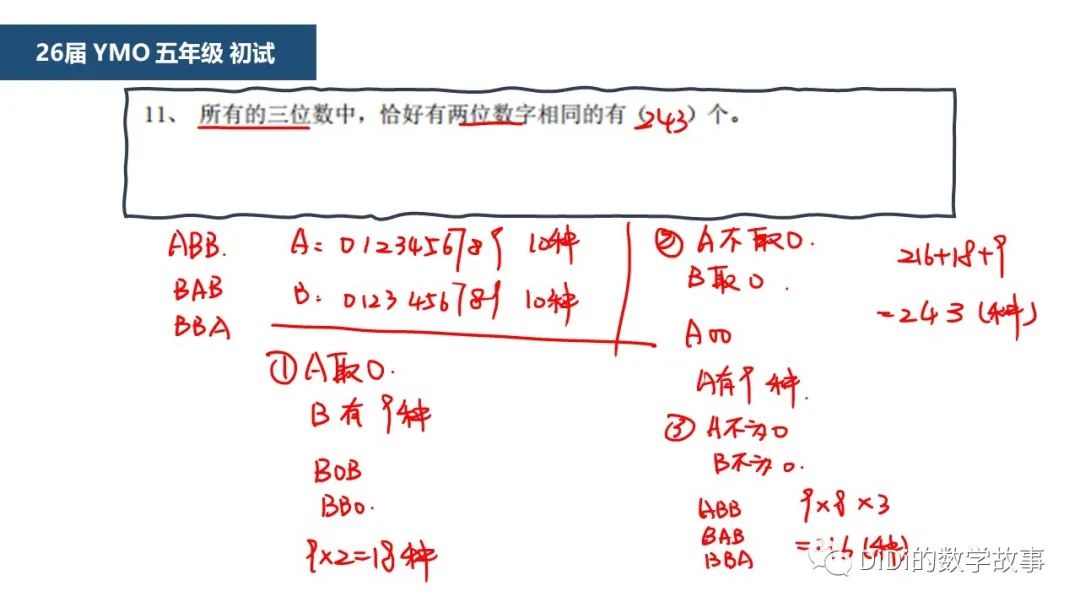 26届 YMO 五年级 初试
11、 所有的三位数中，恰好有两位数字相同的有（243）个。
ABB.
BAB
BBA
A: 0 1 2 3 4 5 6 7 8 9 10种
B: 0 1 2 3 4 5 6 7 8 9 10种
① A取0.
B有9种
B0B
BB0.
9×2=18种
② A不取0.
B取0.
A00
A有9种.
③ A不为0
B不为0.
ABB
BAB
BBA
9×8×3
216+18+9
=243(种)
DIDI的数学故事